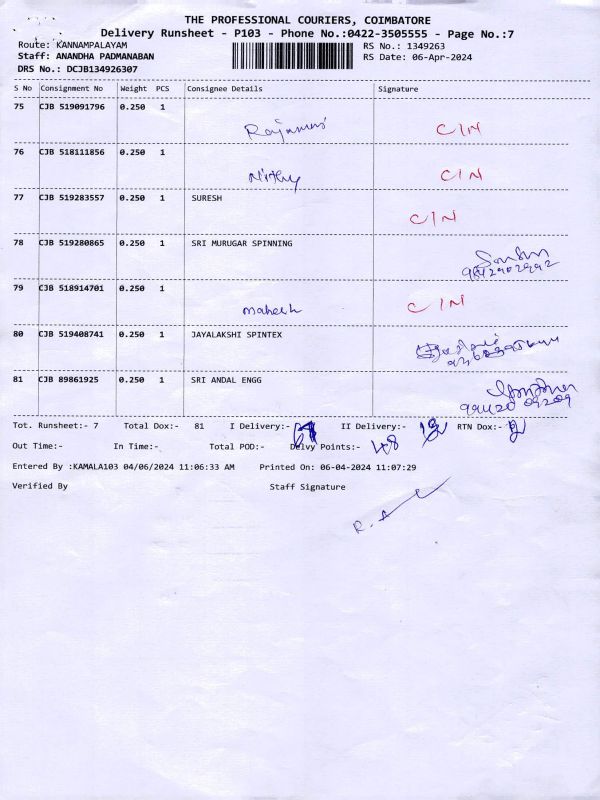 THE PROFESSIONAL COURIERS, COIMBATORE
Delivery Runsheet - P103 - Phone No.:0422-3505555 - Page No.:7
Route: KANNAMPALAYAM RS No.: 1349263
Staff: ANANDHA PADMANABAN RS Date: 06-Apr-2024
DRS No.: DCJB134926307
S No Consignment No Weight PCS Consignee Details Signature
75 CJB 519091796 0.250 1
C/N
76 CJB 518111856 0.250 1
Nithy C/N
77 CJB 519283557 0.250 1 SURESH
C/N
78 CJB 519280865 0.250 1 SRI MURUGAR SPINNING
79 CJB 518914701 0.250 1
mahesh C/N
80 CJB 519408741 0.250 1 JAYALAKSHI SPINTEX
81 CJB 89861925 0.250 1 SRI ANDAL ENGG
Tot. Runsheet:- 7 Total Dox:- 81 I Delivery:- II Delivery:- RTN Dox:-
Out Time:- In Time:- Total POD:- Delvy Points:- 48
Entered By :KAMALA103 04/06/2024 11:06:33 AM Printed On: 06-04-2024 11:07:29
Verified By Staff Signature